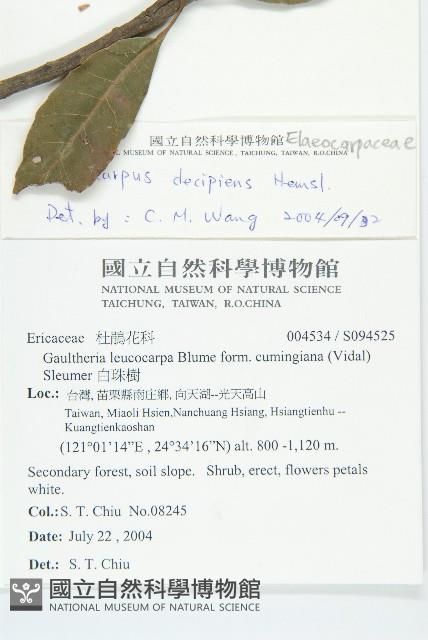 國立自然科學博物館 Elaeocarpaceae
MUSEUM OF NATURAL SCIENCE, TAICHUNG, TAIWAN, R.O.CHINA
carpus decipiens Hemsl.
Det. by : C. M. Wang 2004/09/02
國立自然科學博物館
NATIONAL MUSEUM OF NATURAL SCIENCE
TAICHUNG, TAIWAN, R.O.CHINA
Ericaceae 杜鵑花科 004534 / S094525
Gaultheria leucocarpa Blume form. cumingiana (Vidal)
Sleumer 白珠樹
Loc.: 台灣, 苗栗縣南庄鄉, 向天湖--光天高山
Taiwan, Miaoli Hsien,Nanchuang Hsiang, Hsiangtienhu --
Kuangtienkaoshan
(121°01'14"E , 24°34'16"N) alt. 800 -1,120 m.
Secondary forest, soil slope. Shrub, erect, flowers petals
white.
Col.: S. T. Chiu No.08245
Date: July 22 , 2004
Det.: S. T. Chiu
國立自然科學博物館
NATIONAL MUSEUM OF NATURAL SCIENCE